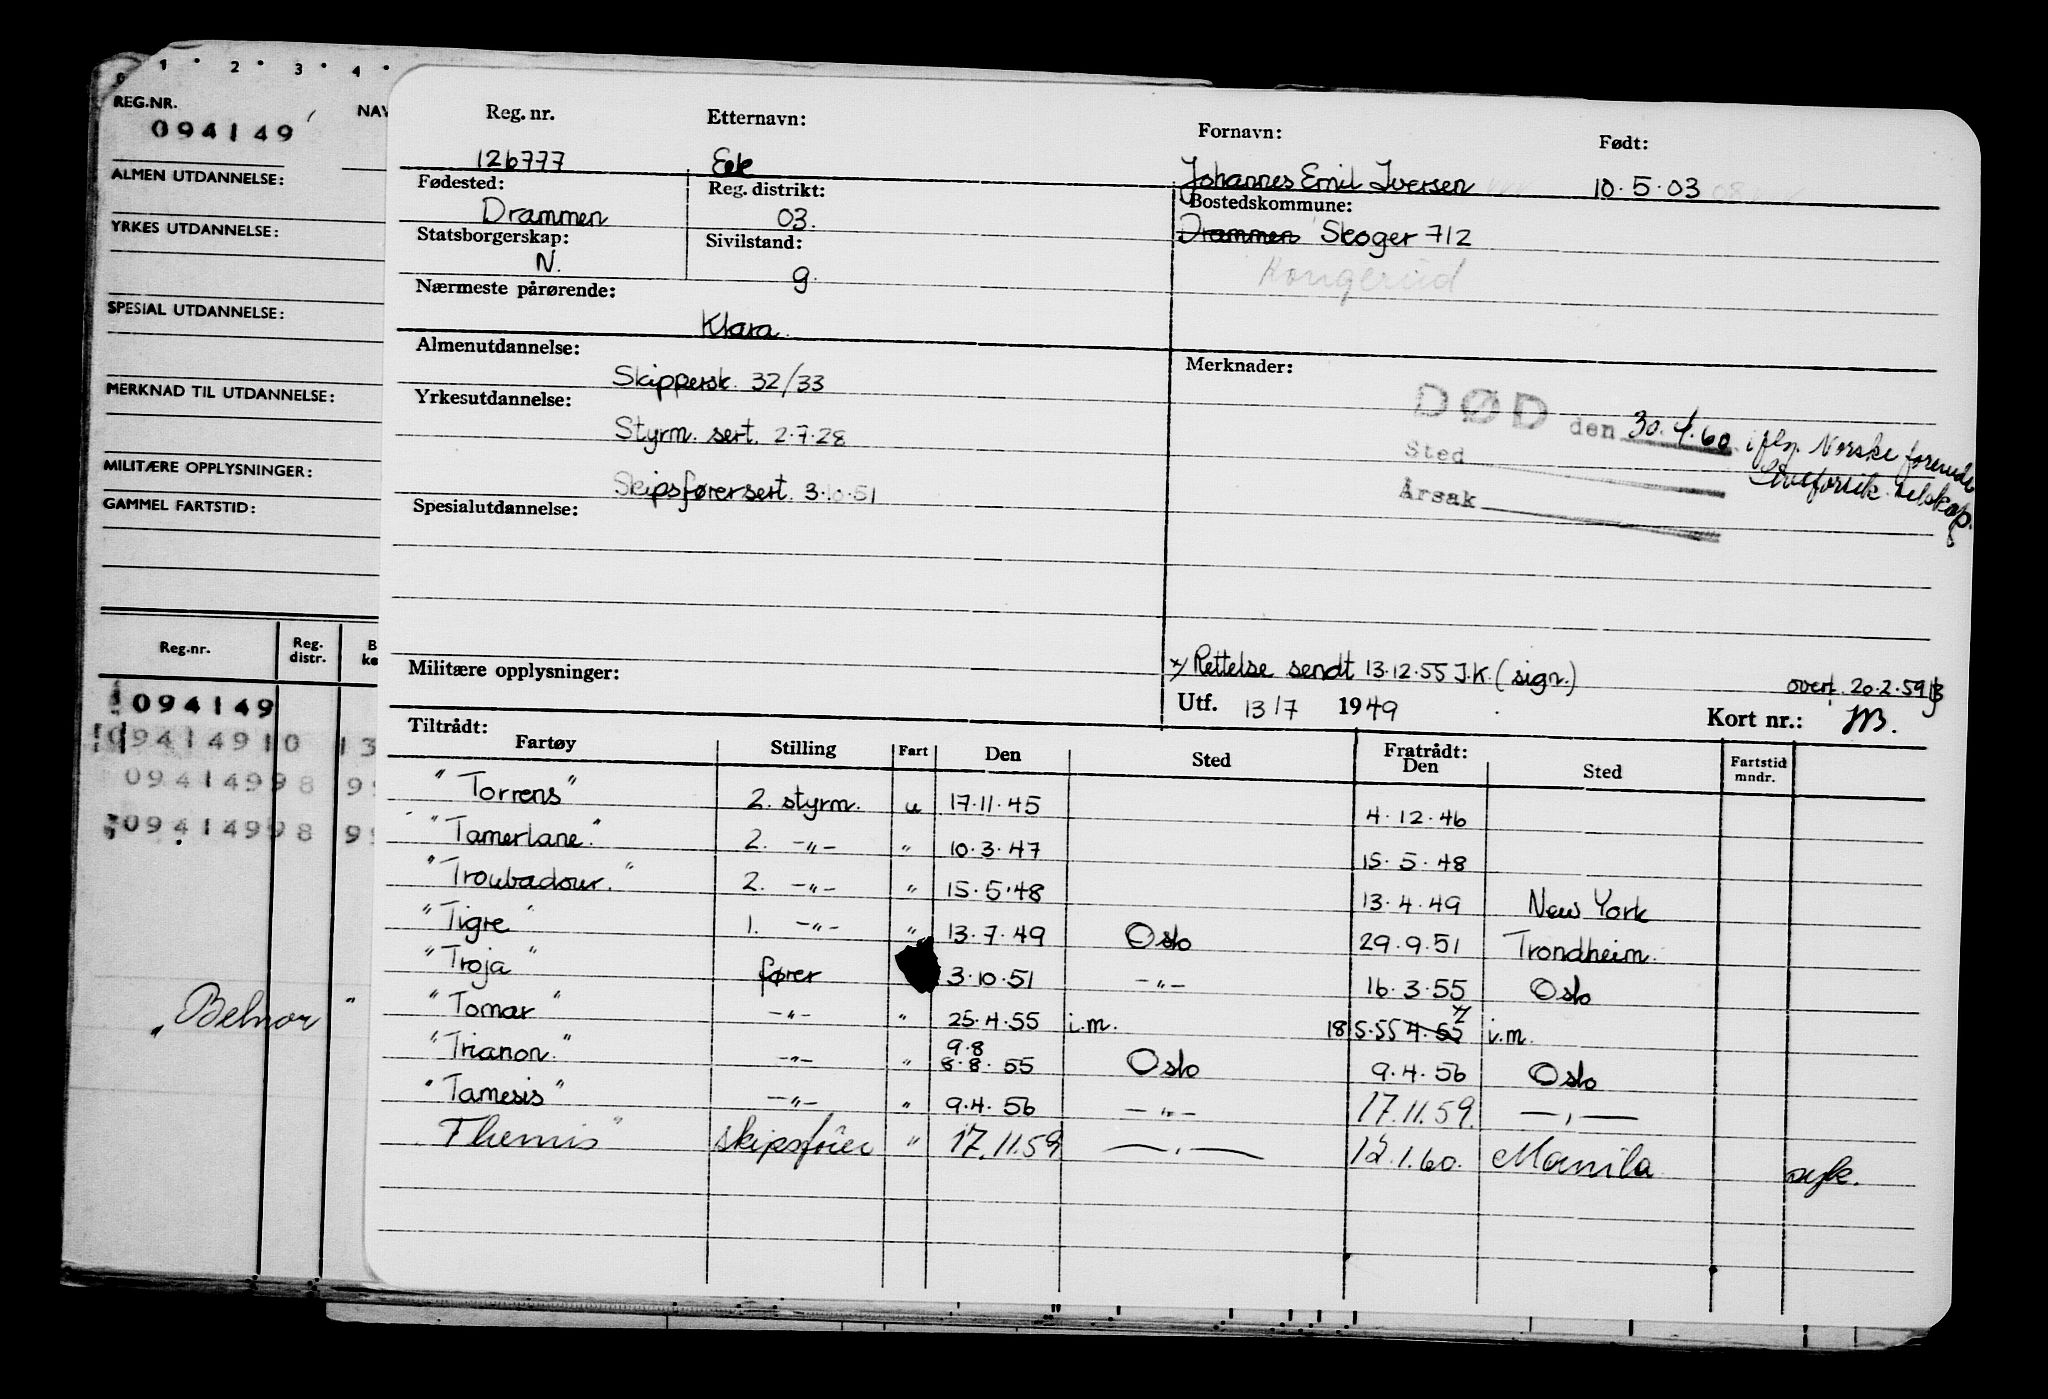 0 1 • 2 • 3 • 4 •
REG.NR.
094149
NAV
ALMEN UTDANNELSE:
YRKES UTDANNELSE:
SPESIAL UTDANNELSE:
MERKNAD TIL UTDANNELSE:
MILITÆRE OPPLYSNINGER:
GAMMEL FARTSTID:
Reg.nr. Reg. distr. B kø
094149
094149 10 13
094149 98 99
094149 98 99
"Belnor"
Reg. nr. Etternavn: Fornavn: Født:
126777 Eek Johannes Emil Iversen 10.5.03
Fødested: Reg. distrikt: Bostedskommune:
Drammen 03. Drammen Skoger 712
Statsborgerskap: Sivilstand:
N. g. Kongerud
Nærmeste pårørende:
Klara.
Almenutdannelse: Merknader:
Skippersk. 32/33
Yrkesutdannelse:
Styrm. sert. 2.7.28
Skipsførersert. 3.10.51
DØD den 30.4.60 iflg. Norske forende
Sted Livsforsik. selskap.
Årsak
Spesialutdannelse:
Militære opplysninger: x/ Rettelse sendt 13.12.55 J.K. (sign.) overf. 20.2.59
Utf. 13/7 1949 Kort nr.:
Tiltrådt: Fratrådt:
Fartøy Stilling Fart Den Sted Den Sted Fartstid mndr.
"Torrens" 2. styrm. u 17.11.45 4.12.46
"Tamerlane" 2. -"- " 10.3.47 15.5.48
"Troubadour" 2. -"- " 15.5.48 13.4.49 New York
"Tigre" 1. -"- " 13.7.49 Oslo 29.9.51 Trondheim.
"Troja" fører 3.10.51 -"- 16.3.55 Oslo
"Tomar" -"- " 25.4.55 i.m. 18.5.55 4.55 x/ i.m.
"Trianon" -"- " 9.8 8.8.55 Oslo 9.4.56 Oslo
"Tamesis" -"- " 9.4.56 -"- 17.11.59. -"-
"Themis" skipsfører " 17.11.59 -"- 12.1.60. Manila syk.